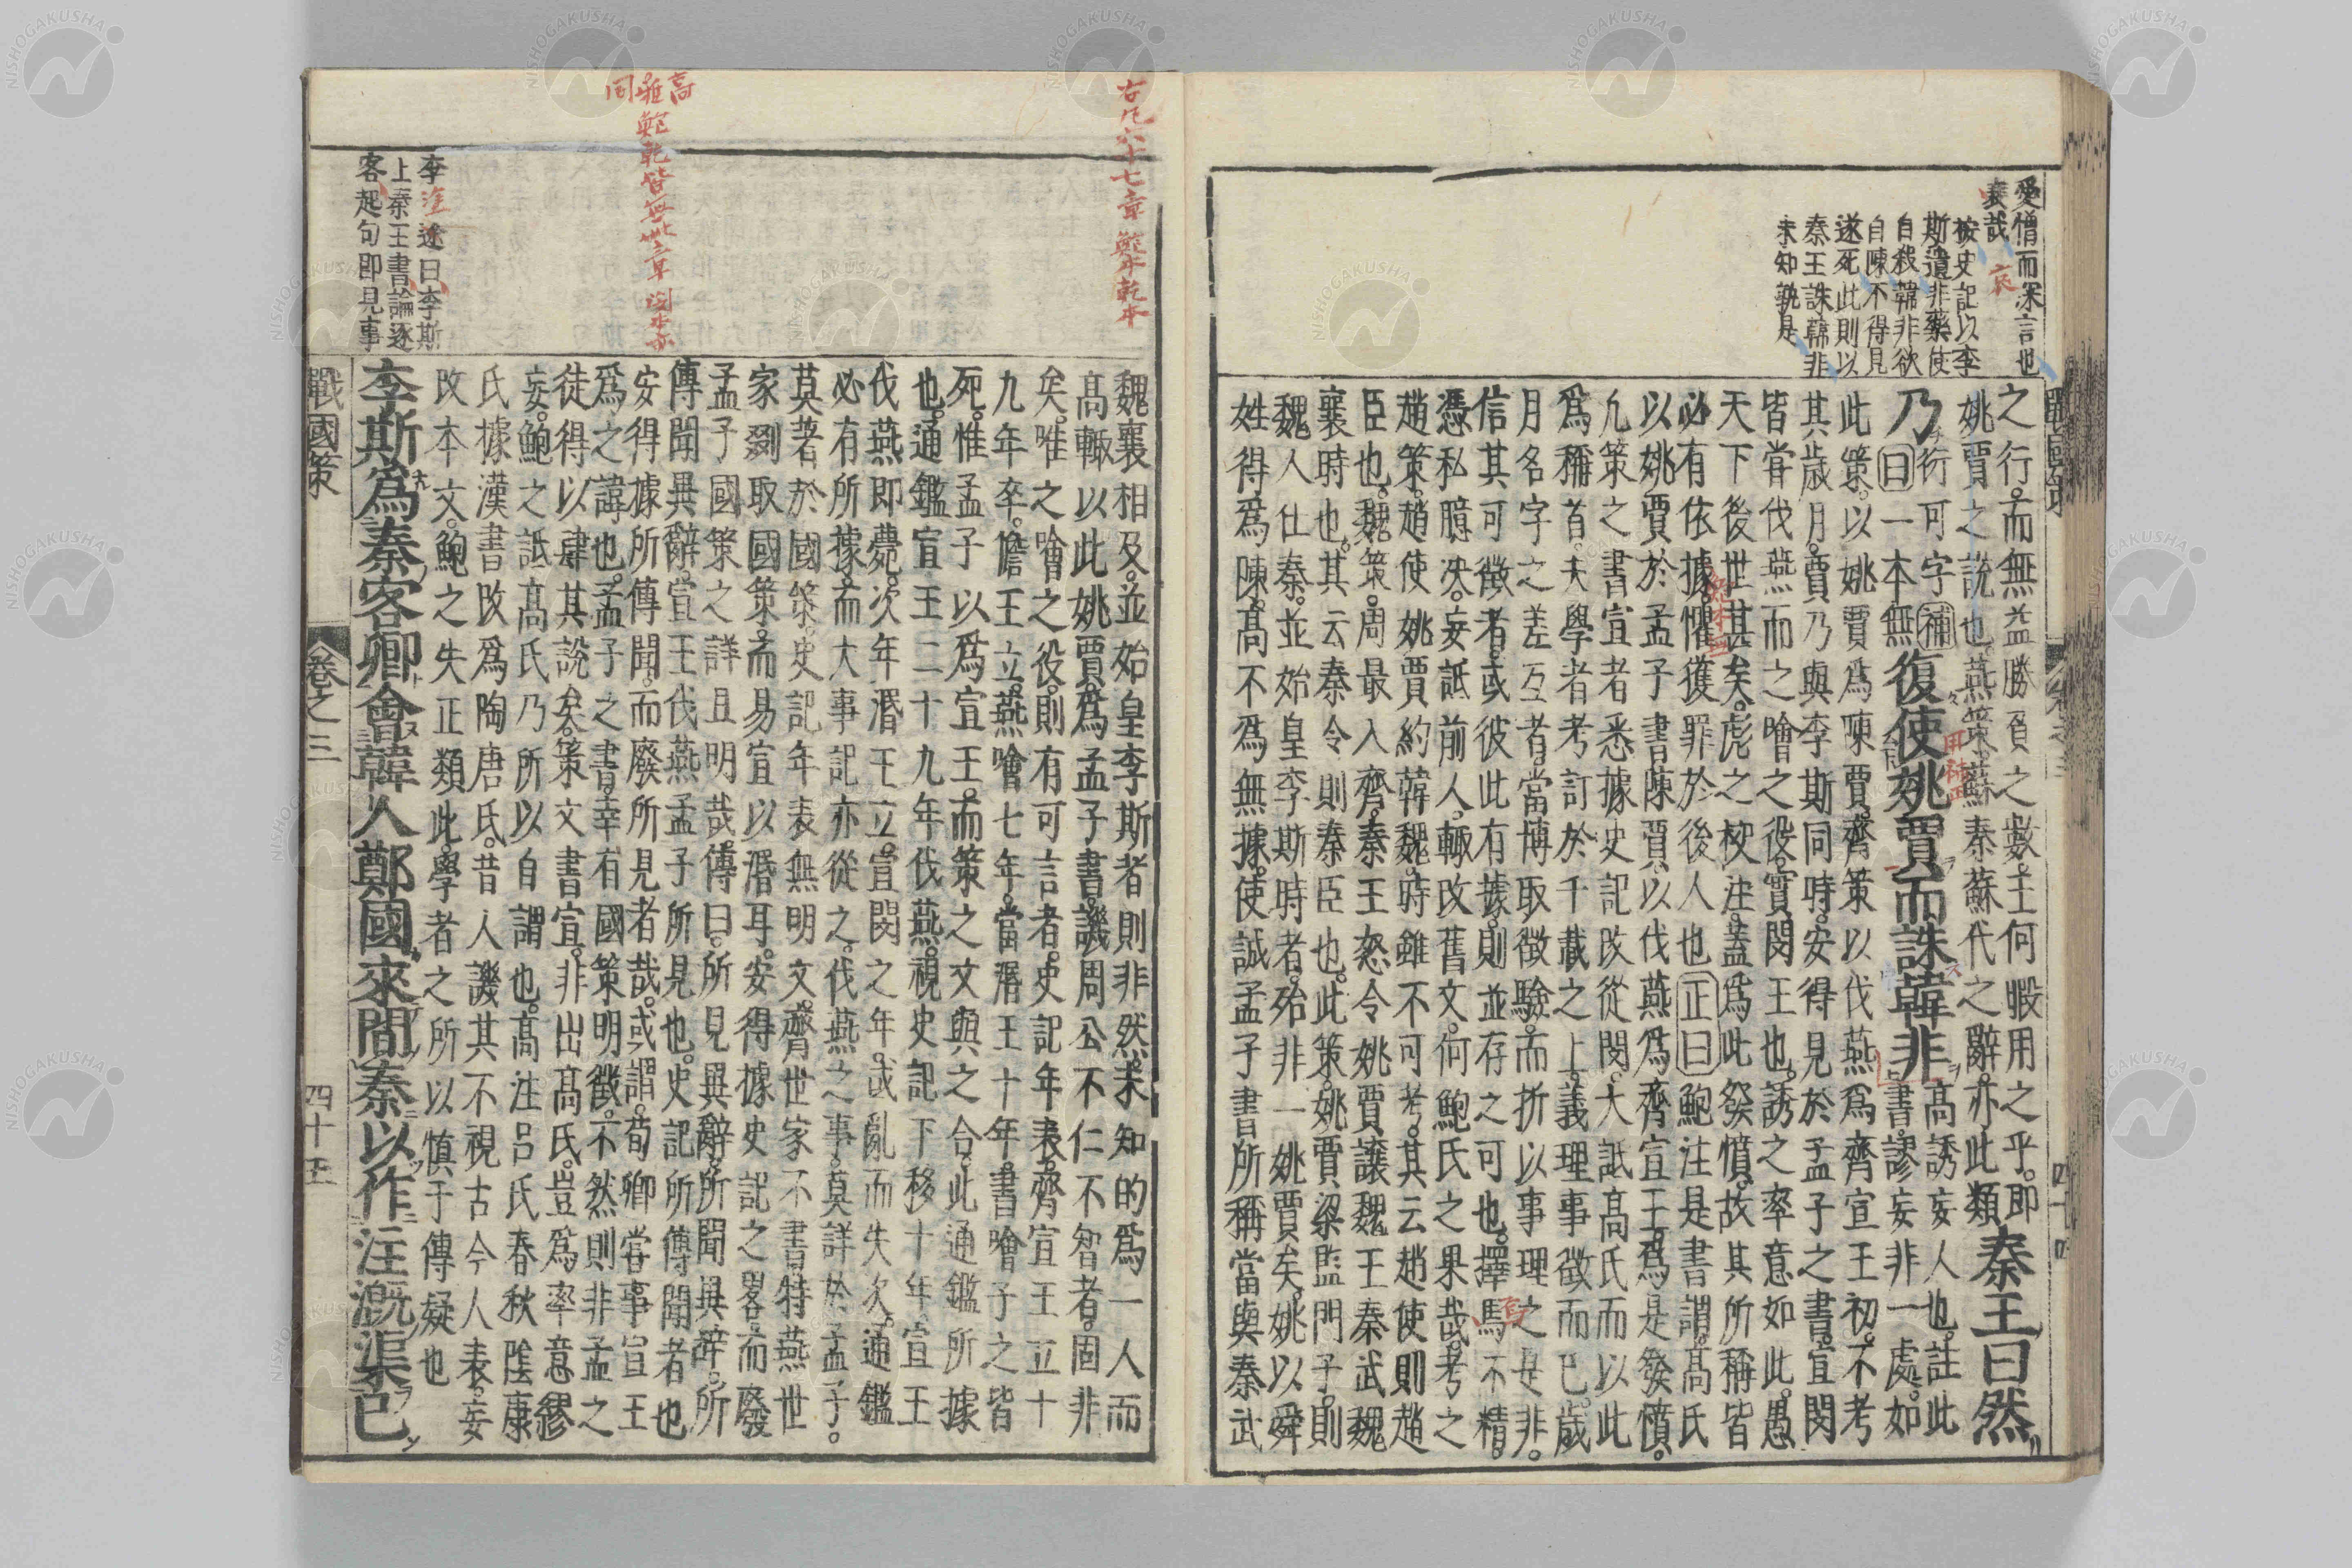 愛憎而深言也
裏哉
哀
按史記以李
斯遺非藥使
自殺韓非欲
自陳不得見
遂死此則以
秦王誅韓非
未知孰是
戰國策 卷之三 四十四
之行。而無益勝負之數。王何暇用之乎。即
姚賈之說也。燕策蘇秦蘇代之辭。亦此類
秦王曰然
乃
衍可字補
曰一本無
復使姚賈而誅韓非
高誘妄人也。註此
書。謬妄非一處。如
此策。以姚賈爲陳賈。齊策以伐燕爲齊宣王初。不考
其歲月。賈乃與李斯同時。安得見於孟子之書。宣閔
皆嘗伐燕而之噲之役。實閔王也。誘之率意如此。愚
天下後世甚矣。彪之校注。蓋爲此發憤。故其所稱皆
必有依據。懼獲罪於後人也正曰鮑注是書。謂高氏
以姚賈於孟子書陳賈。以伐燕爲齊宣王。爲是發憤。
凢策之書宣者悉據史記改從閔。大詆高氏而以此
爲稱首。夫學者考訂於千載之上。義理事徵而已。歲
月名字之差互者。當博取徵驗。而折以事理之是非。
信其可徵者。或彼此有據。則並存之可也。擇焉不精。
憑私臆決。妄詆前人。輒改舊文。何鮑氏之果哉。考之
趙策。趙使姚賈約韓魏。時雖不可考。其云趙使則趙
臣也。魏策。周最入齊。秦王怒令姚賈讓魏王秦武魏
襄時也。其云秦令則秦臣也。此策。姚賈梁監門子。則
魏人仕秦。並始皇李斯時者。殆非一姚賈矣。姚以舜
姓得爲陳。高不爲無據。使誠孟子書所稱當與秦武
右凡六十七章
高雅同
鮑乾皆無此章
李
途曰李斯
上秦王書論逐
客起句即見事
魏襄相及。並始皇李斯者則非然。未知的爲一人而
高輒以此姚賈爲孟子書。譏周公不仁不智者。固非
矣。唯之噲之役。則有可言者。史記年表。齊宣王立十
九年卒。湣王立。燕噲七年。當湣王十年。書噲子之皆
死。惟孟子以爲宣王。而策之文與之合。此通鑑所據
也。通鑑宣王二十九年伐燕。視史記下移十年。宣王
伐燕即薨。次年湣王立。宣閔之年。或亂而失次。通鑑
必有所據。而大事記亦從之。伐燕之事。莫詳於孟子。
莫著於國策。史記年表無明文。齊世家不書。特燕世
家劉取國策。而易宣以湣耳。安得據史記之畧。而廢
孟子國策之詳且明哉。傳曰。所見異辭。所聞異辭。所
傳聞異辭。宣王伐燕孟子所見也。史記所傳聞者也
安得據所傳聞。而廢所見者哉。或謂。荀卿嘗事宣王
爲之諱也。孟子之書。幸有國策明徵。不然則非孟之
徒得以肆其說矣。策文書宣。非出高氏。豈爲率意繆
妄。鮑之詆高氏乃所以自謂也。高注呂氏春秋陰康
氏據漢書改爲陶唐氏。昔人譏其不視古今人表。妄
改本文。鮑之失正類此。學者之所以慎于傳疑也
李斯爲秦客卿會韓人鄭國來間秦以作注溉渠已
戰國策 卷之三 四十五